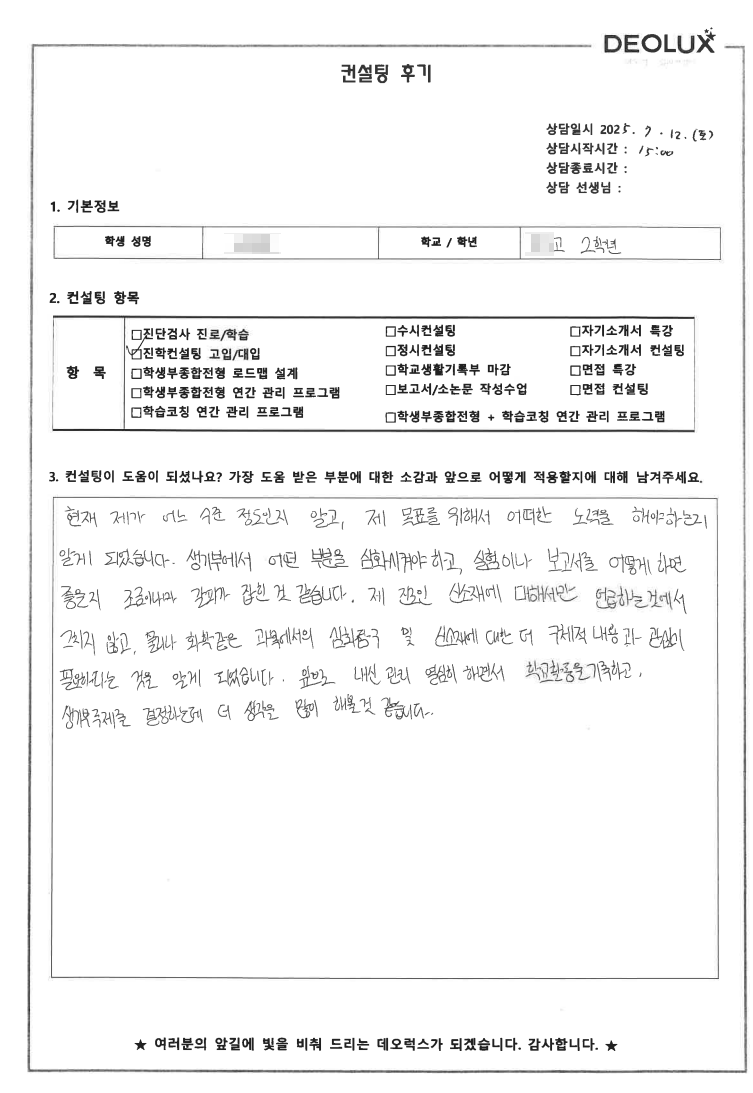 DEOLUX
컨설팅 후기
상담일시 2025. 7. 12. (토)
상담시작시간 : 15:00
상담종료시간 :
상담 선생님 :
1. 기본정보
학생 성명 학교 / 학년 고 2학년
2. 컨설팅 항목
항 목
□진단검사 진로/학습 □수시컨설팅 □자기소개서 특강
☑진학컨설팅 고입/대입 □정시컨설팅 □자기소개서 컨설팅
□학생부종합전형 로드맵 설계 □학교생활기록부 마감 □면접 특강
□학생부종합전형 연간 관리 프로그램 □보고서/소논문 작성수업 □면접 컨설팅
□학습코칭 연간 관리 프로그램 □학생부종합전형 + 학습코칭 연간 관리 프로그램
3. 컨설팅이 도움이 되셨나요? 가장 도움 받은 부분에 대한 소감과 앞으로 어떻게 적용할지에 대해 남겨주세요.
현재 제가 어느 수준 정도인지 알고, 제 목표를 위해서 어떠한 노력을 해야하는지
알게 되었습니다. 생기부에서 어떤 부분을 심화시켜야 하고, 실험이나 보고서를 어떻게 하면
좋을지 조금이나마 갈피가 잡힌 것 같습니다. 제 진로인 신소재에 대해서만 언급하는 것에서
그치지 않고, 물리나 화학같은 과목에서의 심화탐구 및 신소재에 대한 더 구체적 내용과 관심이
필요하다는 것을 알게 되었습니다. 앞으로 내신 관리 열심히 하면서 학교활동을 기록하고,
생기부주제를 결정하는데 더 생각을 많이 해볼 것 같습니다.
★ 여러분의 앞길에 빛을 비춰 드리는 데오럭스가 되겠습니다. 감사합니다. ★